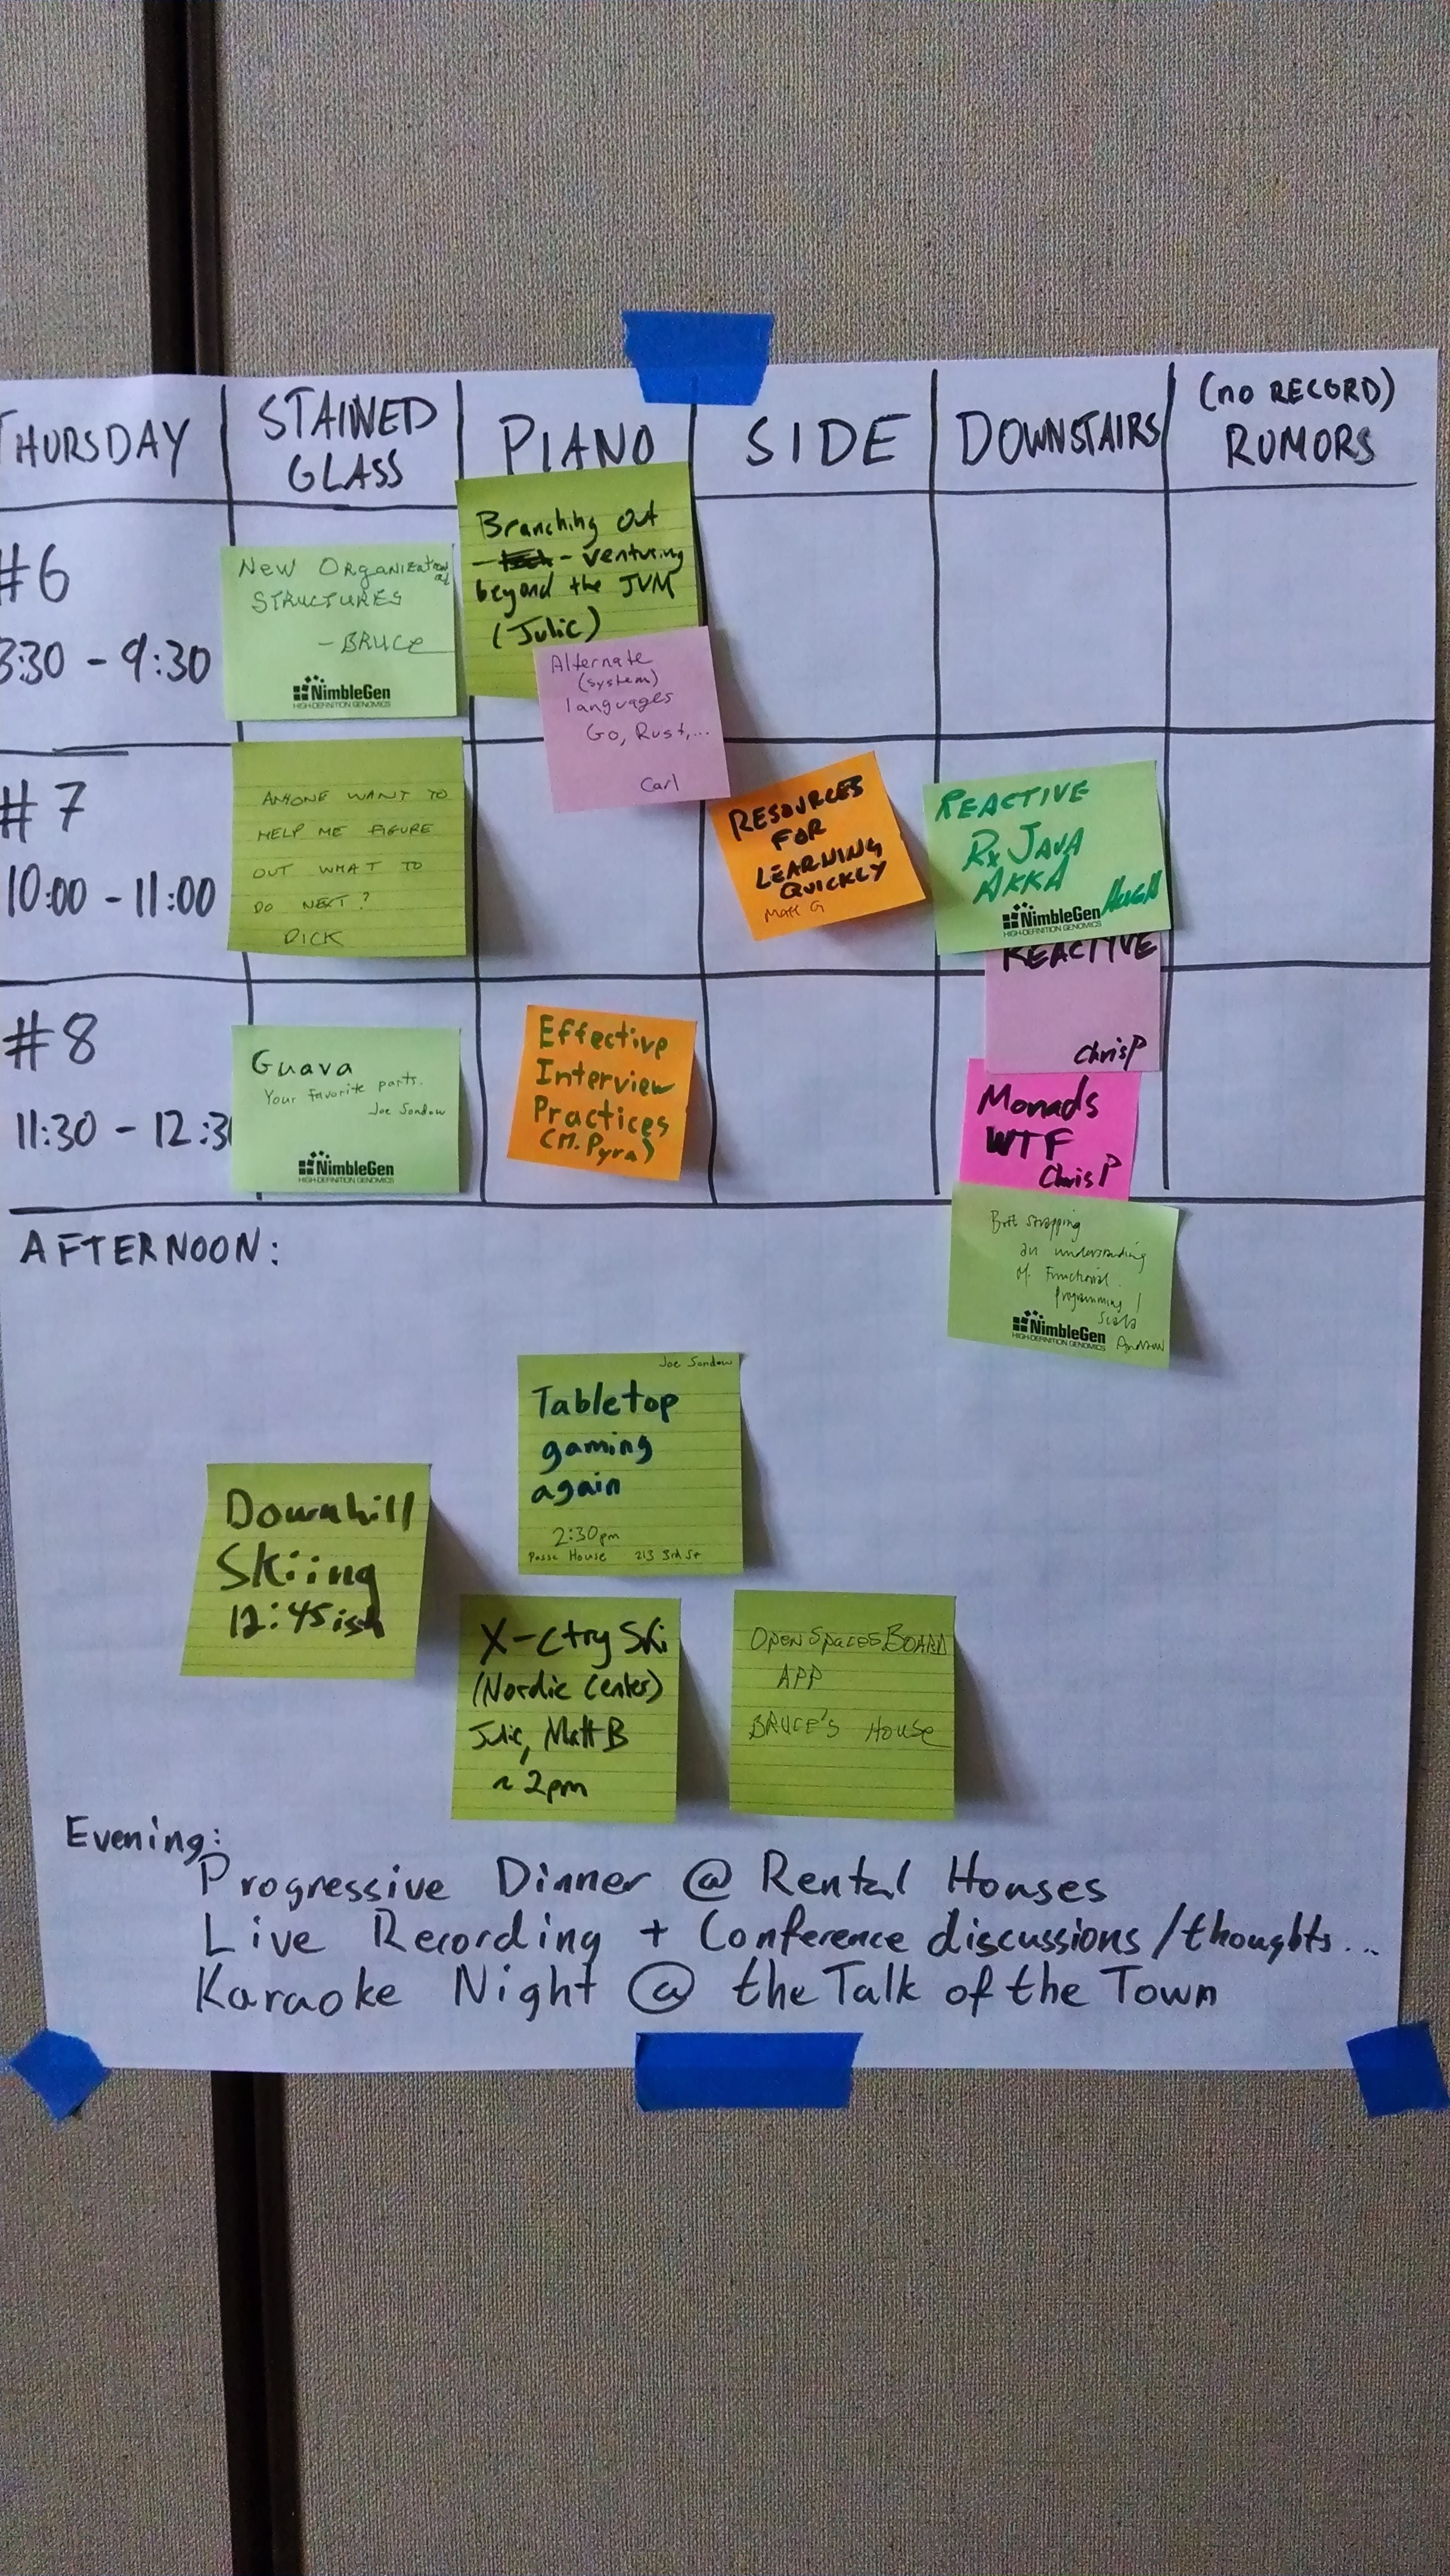 THURSDAY
STAINED
GLASS
PIANO
SIDE
DOWNSTAIRS
(no RECORD)
RUMORS
#6
8:30 - 9:30
New ORGANIZATIONAL
STRUCTURES
- BRUCE
NimbleGen
HIGH-DEFINITION GENOMICS
Branching Out
- - venturing
beyond the JVM
(Julie)
Alternate
(system)
languages
Go, Rust,...
Carl
#7
10:00 - 11:00
ANYONE WANT TO
HELP ME FIGURE
OUT WHAT TO
DO NEXT?
DICK
RESOURCES
FOR
LEARNING
QUICKLY
Matt G
REACTIVE
Rx JAVA
AKKA
HUGH
NimbleGen
HIGH-DEFINITION GENOMICS
REACTIVE
ChrisP
#8
11:30 - 12:30
Guava
Your favorite parts.
Joe Sondow
NimbleGen
HIGH-DEFINITION GENOMICS
Effective
Interview
Practices
(M. Pyra)
Monads
WTF
ChrisP
Boot strapping
an understanding
of Functional
programming /
Scala
Andrew
NimbleGen
HIGH-DEFINITION GENOMICS
AFTERNOON:
Joe Sondow
Tabletop
gaming
again
2:30pm
Posse House 213 3rd St
Downhill
Skiing
12:45ish
X-ctry Ski
(Nordic Center)
Julie, Matt B
~ 2pm
OPEN SPACES BOARD
APP
BRUCE'S House
Evening:
Progressive Dinner @ Rental Houses
Live Recording + Conference discussions/thoughts...
Karaoke Night @ the Talk of the Town